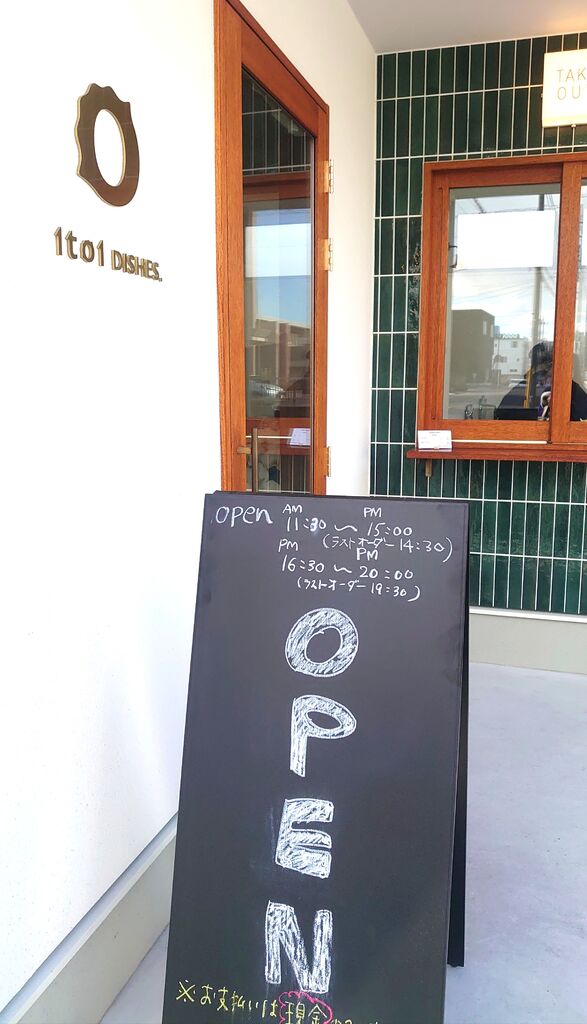 TAK
OU
1to1 DISHES.
open AM 11:30 〜 PM 15:00
(ラストオーダー 14:30)
PM 16:30 〜 PM 20:00
(ラストオーダー 19:30)
OPEN
※お支払いは現金